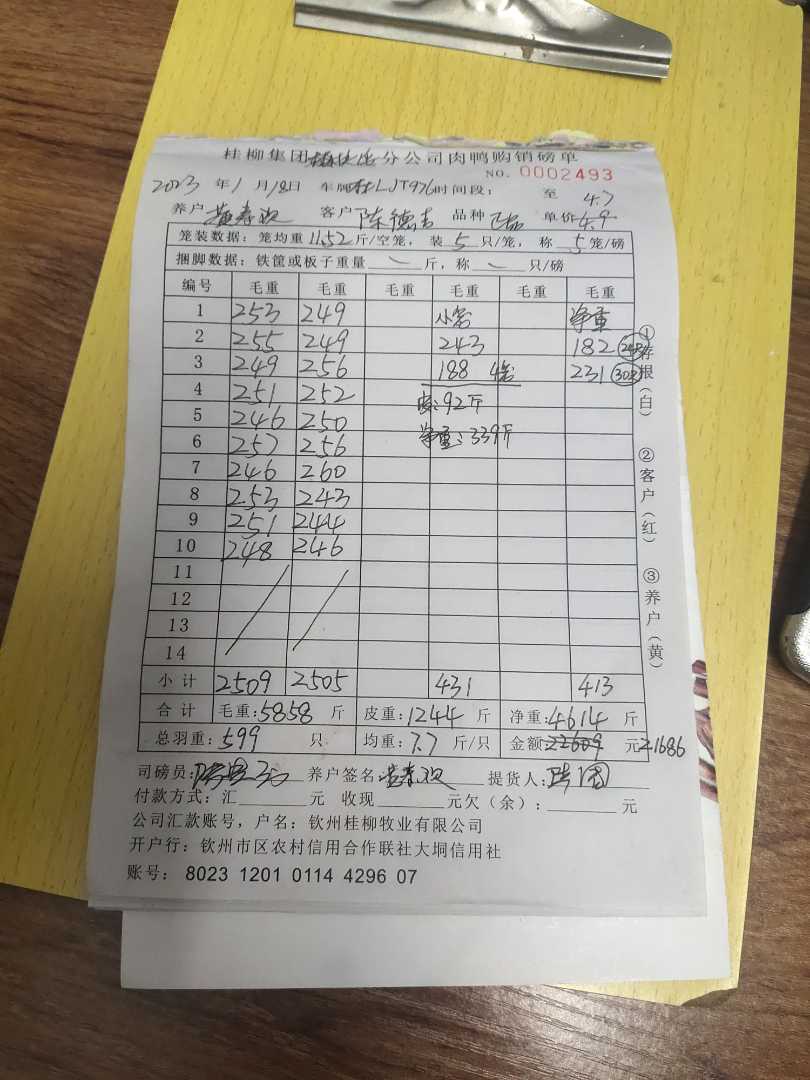 桂柳集团 分公司肉鸭购销磅单
NO. 0002493
2023年1月18日 车牌桂LJT976时间段: 至 4.7
养户 黄寿欢 客户 陈德吉 品种 单价4.9
笼装数据: 笼均重11.52斤/空笼, 装5只/笼, 称5笼/磅
捆脚数据: 铁筐或板子重量 斤, 称 只/磅
编号 毛重 毛重 毛重 毛重 毛重 毛重
1 253 249 小笼 净重
2 255 249 243 182
3 249 256 188 4笼 231
4 251 252 皮:92斤
5 246 250
6 257 256 净重:339斤
7 246 260
8 253 243
9 251 244
10 248 246
11
12
13
14
小计 2509 2505 431 413
合计 毛重:5858 斤 皮重:1244 斤 净重:4614 斤
总羽重:599 只 均重:7.7 斤/只 金额22609 元21686
司磅员: 养户签名 黄寿欢 提货人:
付款方式:汇 元 收现 元欠(余): 元
公司汇款账号,户名: 钦州桂柳牧业有限公司
开户行: 钦州市区农村信用合作联社大垌信用社
账号: 8023 1201 0114 4296 07
①存根(白)
②客户(红)
③养户(黄)